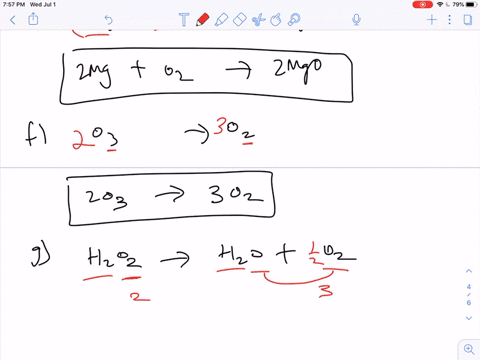 7:57 PM Wed Jul 1
79%
2Mg + O2 → 2MgO
f) 2O3 → 3O2
2O3 → 3O2
g) H2O2 → H2O + 1/2 O2
2 3
4
/
6